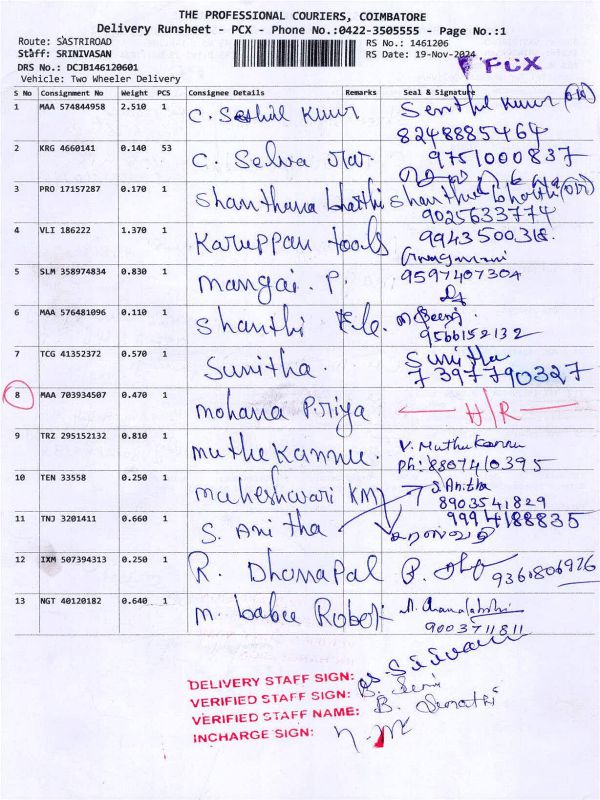 THE PROFESSIONAL COURIERS, COIMBATORE
Delivery Runsheet - PCX - Phone No.:0422-3505555 - Page No.:1
Route: SASTRIROAD RS No.: 1461206
Staff: SRINIVASAN RS Date: 19-Nov-2024
DRS No.: DCJB146120601 PCX
Vehicle: Two Wheeler Delivery
S No Consignment No Weight PCS Consignee Details Remarks Seal & Signature
1 MAA 574844958 2.510 1 C. Senthil Kumar Senthil Kumar
8248885464
2 KRG 4660141 0.140 53 C. Selva 9751000837
3 PRO 17157287 0.170 1 Shanthana bharthi Shanthana bharthi
9025633774
4 VLI 186222 1.370 1 Karuppan tools 9943500318
5 SLM 358974834 0.830 1 mangai. P. 9597407304
6 MAA 576481096 0.110 1 Shanthi
9566152132
7 TCG 41352372 0.570 1 Sunitha. Sunitha
7397790327
8 MAA 703934507 0.470 1 mohana Priya
9 TRZ 295152132 0.810 1 muthu Kannu. V. Muthu Kannu
Ph: 8807410395
10 TEN 33558 0.250 1 maheshwari KM S. Anitha
8903541829
11 TNJ 3201411 0.660 1 S. Anitha 9994188835
12 IXM 507394313 0.250 1 R. Dhanapal 9361806926
13 NGT 40120182 0.640 1 m. babu Robert
9003711811
DELIVERY STAFF SIGN:
VERIFIED STAFF SIGN:
VERIFIED STAFF NAME: B. Sumathi
INCHARGE SIGN: